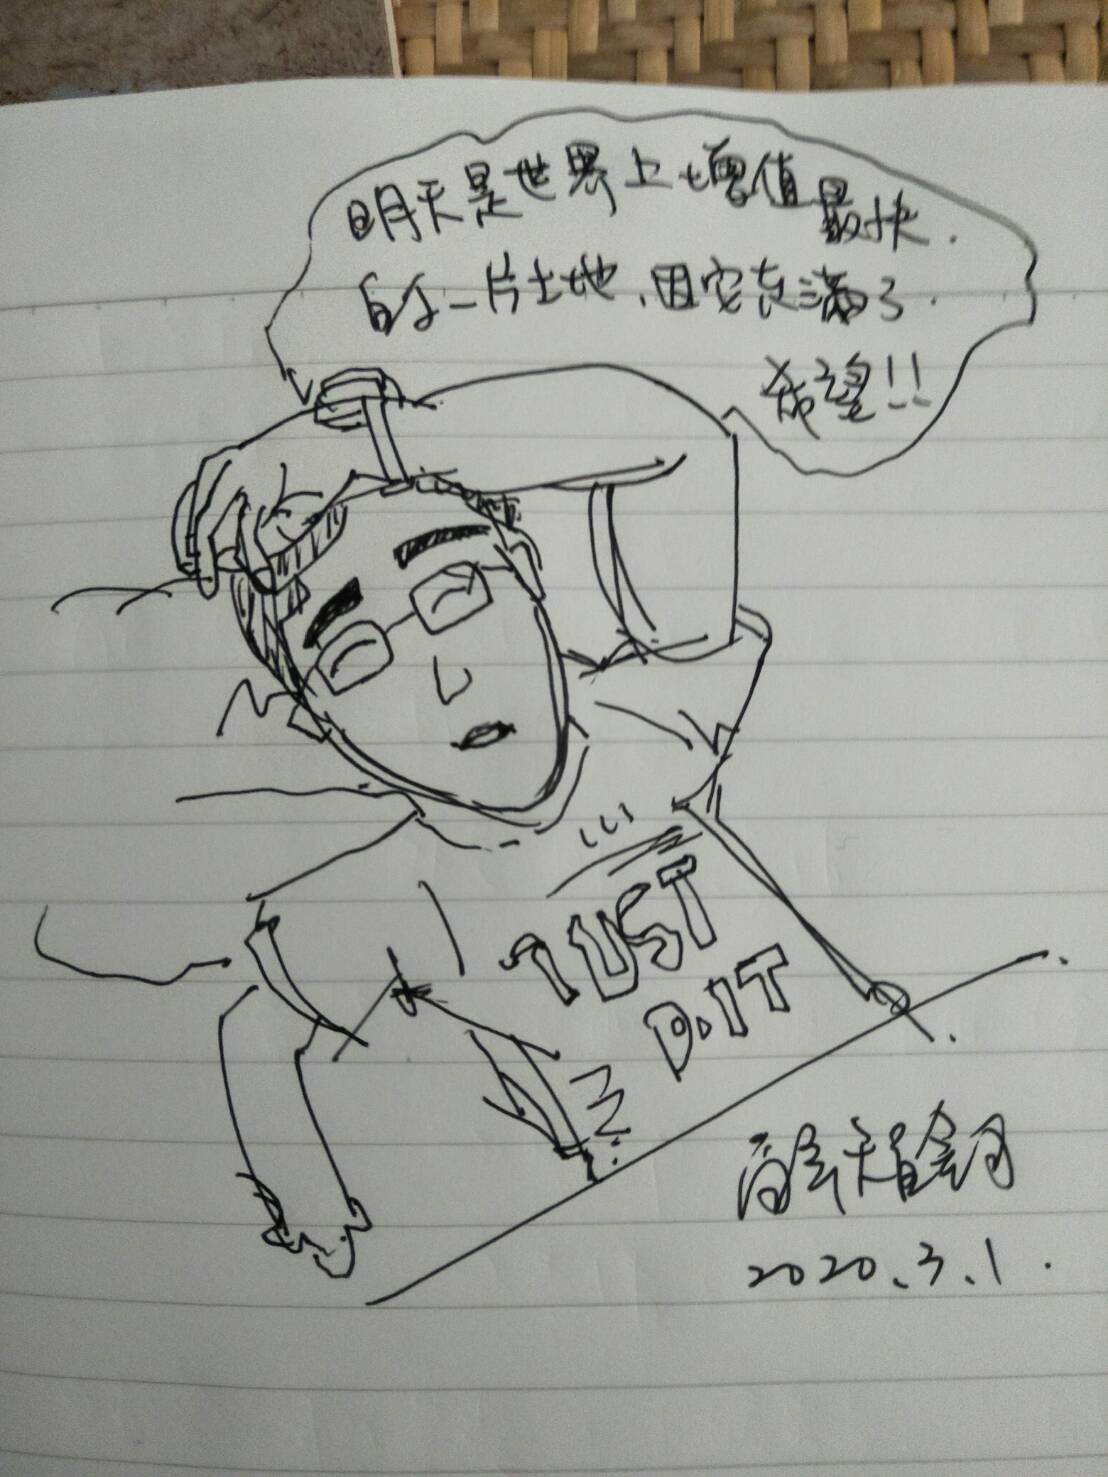 明天是世界上增值最快
的一片土地,因它充满了.
希望!!
JUST
DO.IT
2020.3.1.